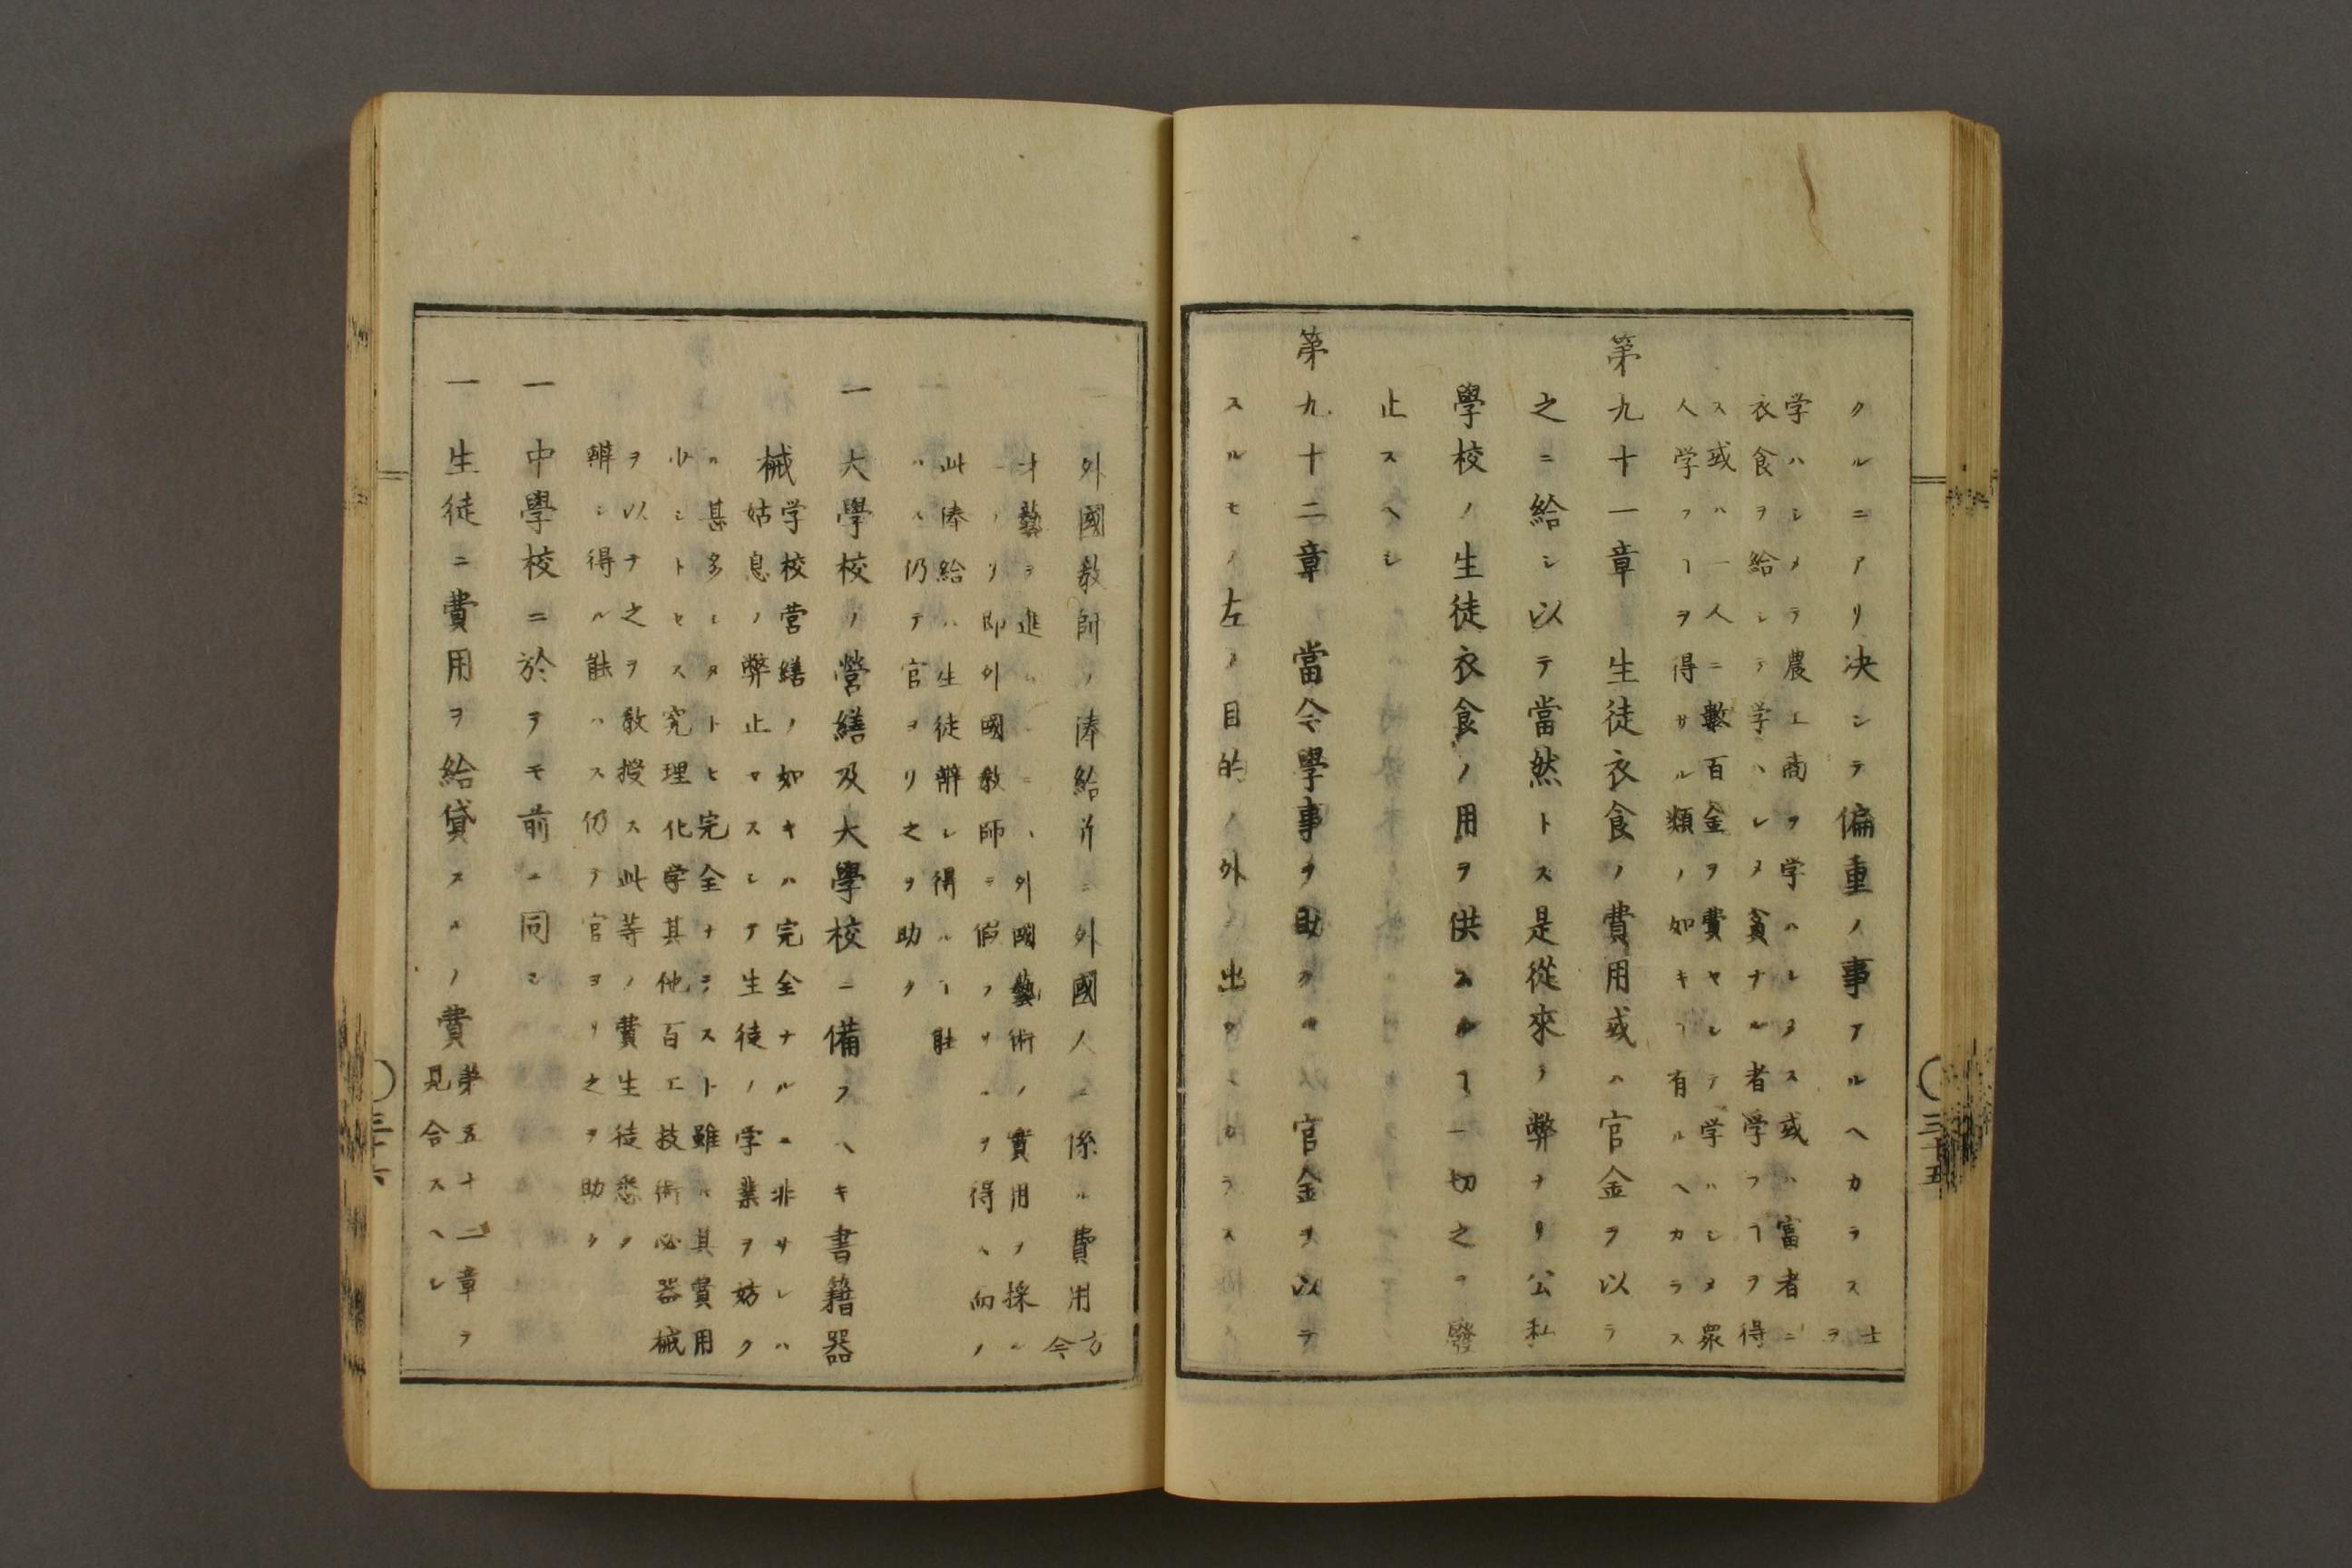 クルニアリ決シテ偏重ノ事アルヘカラス士ヲ
学ハシメテ農工商ヲ学ハシメス或ハ富者ニ
衣食ヲ給シテ学ハシメ貧ナル者学フヿヲ得
ス或ハ一人ニ數百金ヲ費ヤシテ学ハシメ衆
人学フヿヲ得サル類ノ如キヿ有ルヘカラス
第九十一章　生徒衣食ノ費用或ハ官金ヲ以テ
之ニ給シ以テ當然トス是從來ノ弊ナリ公私
學校ノ生徒衣食ノ用ヲ供スルヿ一切之ヲ廢
止スヘシ
第九十二章　當今學事ヲ助クルハ官金ヲ以テ
スルモノ左ノ目的ノ外ニ出ツヘカラス
三十五
一外國教師ノ俸給并ニ外國人ニ係ル費用方今
才藝ヲ進ムルニハ外國藝術ノ實用ヲ採ル
ニアリ即外國教師ヲ假ラサルヲ得ス而ノ
此俸給ハ生徒辨シ得ルヿ能
ハス仍テ官ヨリ之ヲ助ク
一大學校ノ營繕及大學校ニ備フヘキ書籍器
械
学校営繕ノ如キハ完全ナルニ非サレハ
姑息ノ弊止マスシテ生徒ノ学業ヲ妨ク
ハ甚多シタトヒ完全ナラスト雖ハ其實用
少シトセス究理化学其他百工技術必器械
ヲ以テ之ヲ教授ス此等ノ費生徒悉ク
辨シ得ル能ハス仍テ官ヨリ之ヲ助ク
一中學校ニ於テモ前ニ同シ
一生徒ニ費用ヲ給貸スルノ費
第五十二章ヲ
見合スヘシ
三十六